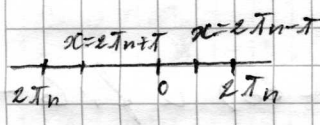 x=2πn+π x=2πn-π
2πn 0 2πn